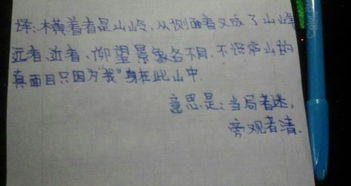 译:横着看是山岭,从侧面看又成了山峰
远看、近看、仰望景象各不同。不识庐山的
真面目只因为“我”身在此山中.
意思是:当局者迷,
旁观者清.